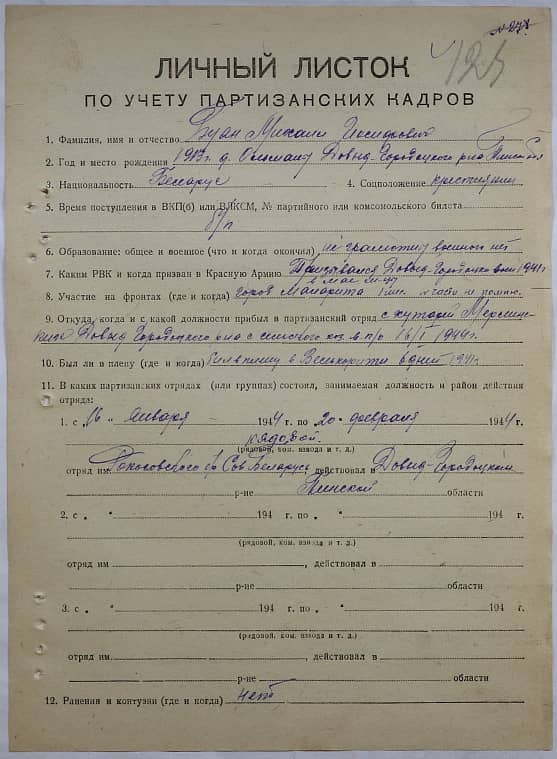 ЛИЧНЫЙ ЛИСТОК
ПО УЧЕТУ ПАРТИЗАНСКИХ КАДРОВ
1. Фамилия, имя и отчество Михаил
2. Год и место рождения 1913 г. д. Давыд-Городоцкого р-на
3. Национальность Беларус 4. Соцположение крестьянин
5. Время поступления в ВКП(б) или ВЛКСМ, № партийного или комсомольского билета
б/п
6. Образование: общее и военное (что и когда окончил) не грамотный военного нет
7. Каким РВК и когда призван в Красную Армию Призывался Давыд-Городоцк 1941 г
в мае м-це
8. Участие на фронтах (где и когда) город Малорита
9. Откуда, когда и с какой должности прибыл в партизанский отряд с хуторов
Давыд Городоцкого р-на с 16/I 1944 г.
10. Был ли в плену (где и когда) Был в плену в 6 дней 1941 г
11. В каких партизанских отрядах (или группах) состоял, занимаемая должность и район действия
отряда:
1. с „16 " января 1944 г. по „20 " февраля 1944 г.
рядовой.
(рядовой, ком. взвода и т. д.)
отряд им. Рокосовского бр Сов Беларусь, действовал в Давыд-Городоцким
р-не Пинской области
2. с „ " 194 г. по „ " 194 г.
(рядовой, ком. взвода и т. д.)
отряд им. , действовал в
р-не области
3. с „ " 194 г. по „ " 194 г.
(рядовой, ком. взвода и т. д.)
отряд им. , действовал в
р-не области
12. Ранения и контузии (где и когда) нет